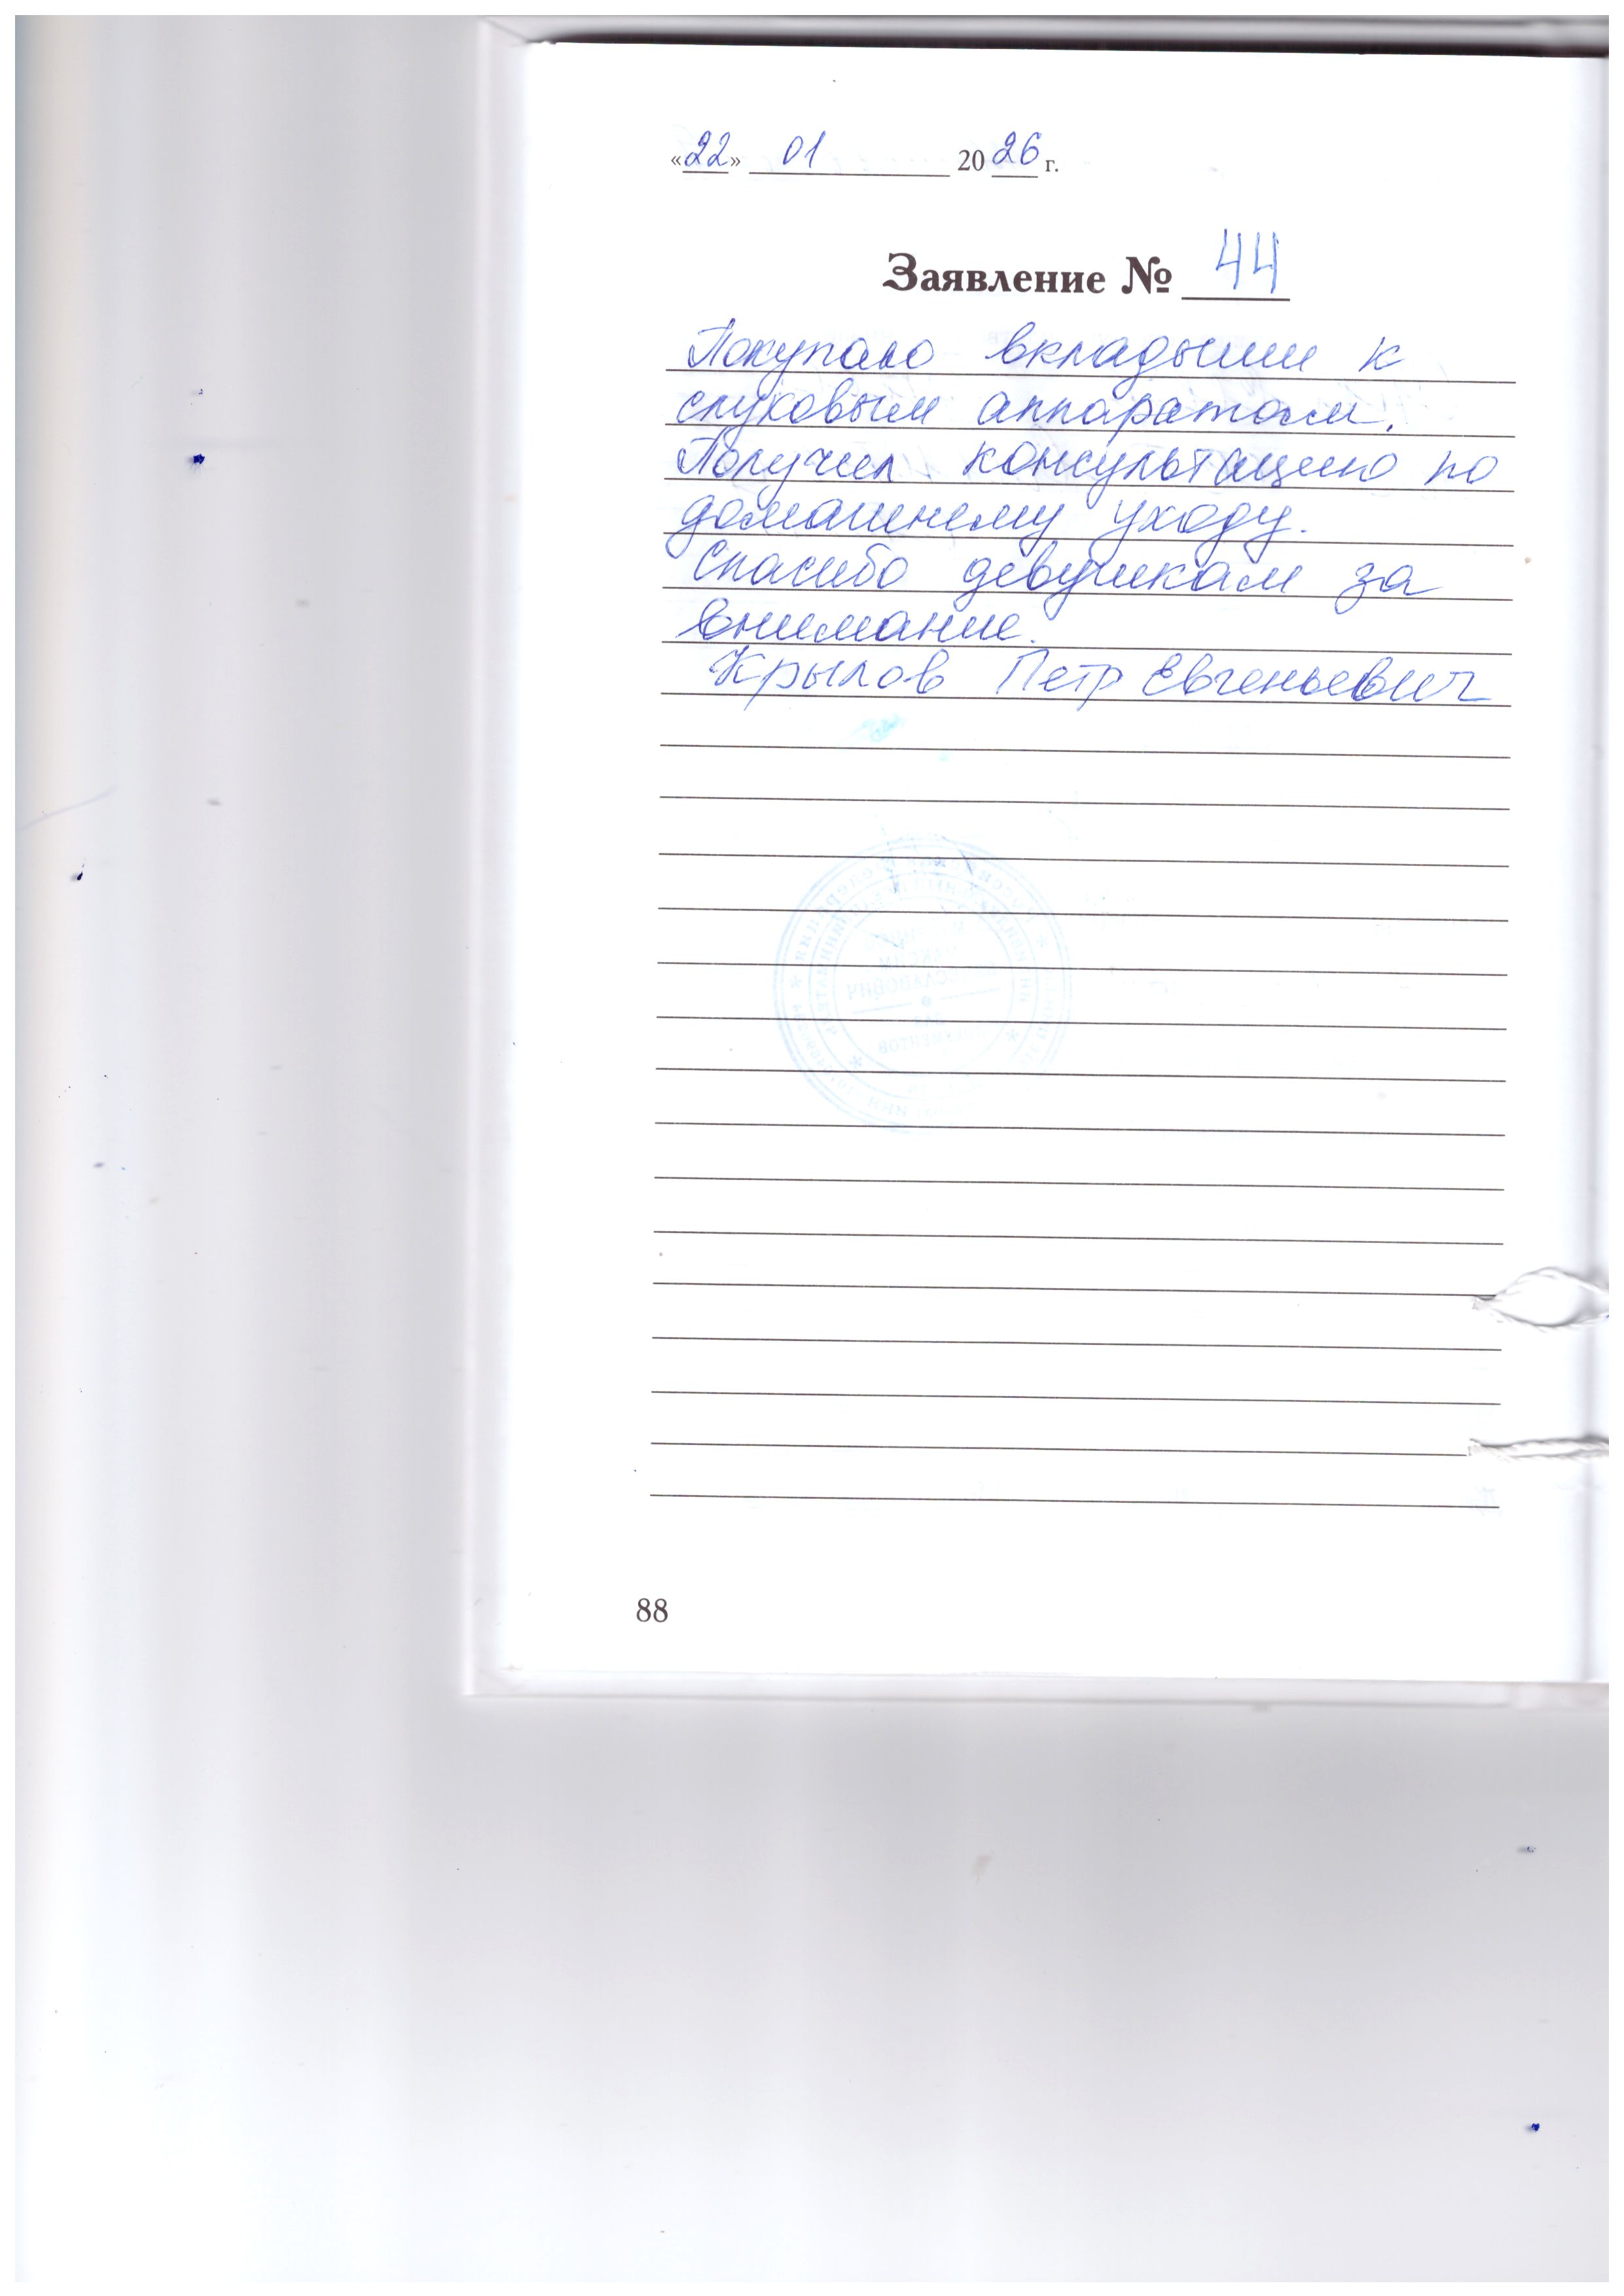 «22» 01 2026 г.
Заявление № 44
Покупаю вкладыши к
слуховым аппаратам.
Получил консультацию по
домашнему уходу.
Спасибо девушкам за
внимание.
Крылов Петр Евгеньевич
88